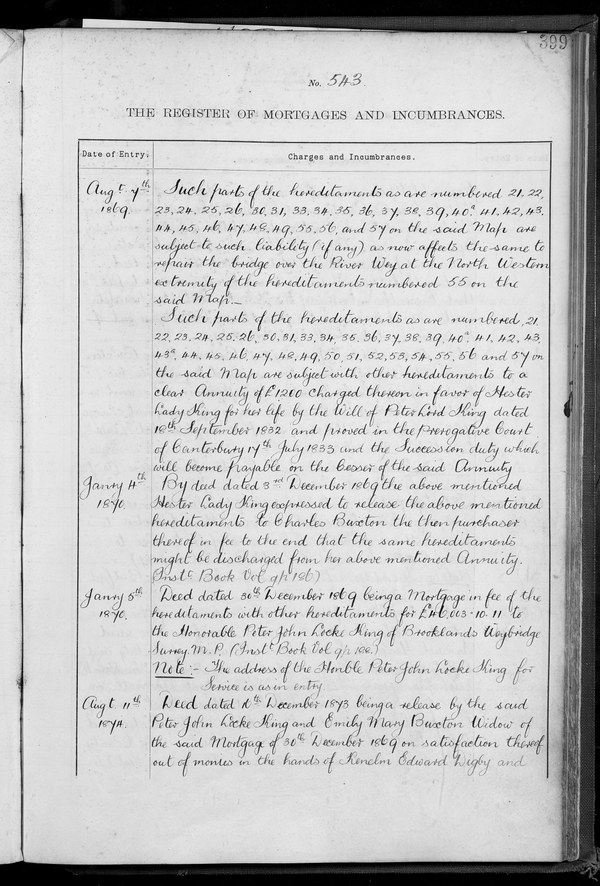 399
No. 543
THE REGISTER OF MORTGAGES AND INCUMBRANCES.
Date of Entry. Charges and Incumbrances.
Augt. 7th Such parts of the hereditaments as are numbered 21, 22,
1869 23, 24, 25, 26, 30, 31, 33, 34, 35, 36, 37, 38, 39, 40a 41, 42, 43,
44, 45, 46, 47, 48, 49, 55, 56, and 57 on the said Map are
subject to such liability (if any) as now affects the same to
repair the bridge over the River Wey at the North Western
extremity of the hereditaments numbered 55 on the
said Map.—
Such parts of the hereditaments as are numbered, 21,
22, 23, 24, 25, 26, 30, 31, 33, 34, 35, 36, 37, 38, 39, 40a. 41. 42, 43,
43a, 44, 45, 46, 47, 48, 49, 50, 51, 52, 53, 54, 55, 56 and 57 on
the said Map are subject with other hereditaments to a
clear Annuity of £1200 charged thereon in favor of Hester
Lady King for her life by the Will of Peter Lord King dated
18th September 1832 and proved in the Prerogative Court
of Canterbury 17th July 1833 and the Succession duty which
will become payable on the Cesser of the said Annuity
Janry 4th By deed dated 3rd December 1869 the above mentioned
1870 Hester Lady King expressed to release the above mentioned
hereditaments to Charles Buxton the then purchaser
thereof in fee to the end that the same hereditaments
might be discharged from her above mentioned Annuity.
(Instt. Book Vol. g p. 186)
Janry 5th Deed dated 30th December 1869 being a Mortgage in fee of the
1870. hereditaments with other hereditaments for £46,003-10-11 to
the Honorable Peter John Locke King of Brooklands Weybridge
Surrey M.P. (Instt. Book Vol g p. 188.)
Note:- The address of the Honble Peter John Locke King for
Service is as in entry
Augt. 11th Deed dated 16th December 1873 being a release by the said
1874. Peter John Locke King and Emily Mary Buxton Widow of
the said Mortgage of 30th December 1869 on satisfaction thereof
out of monies in the hands of Kenelm Edward Digby and